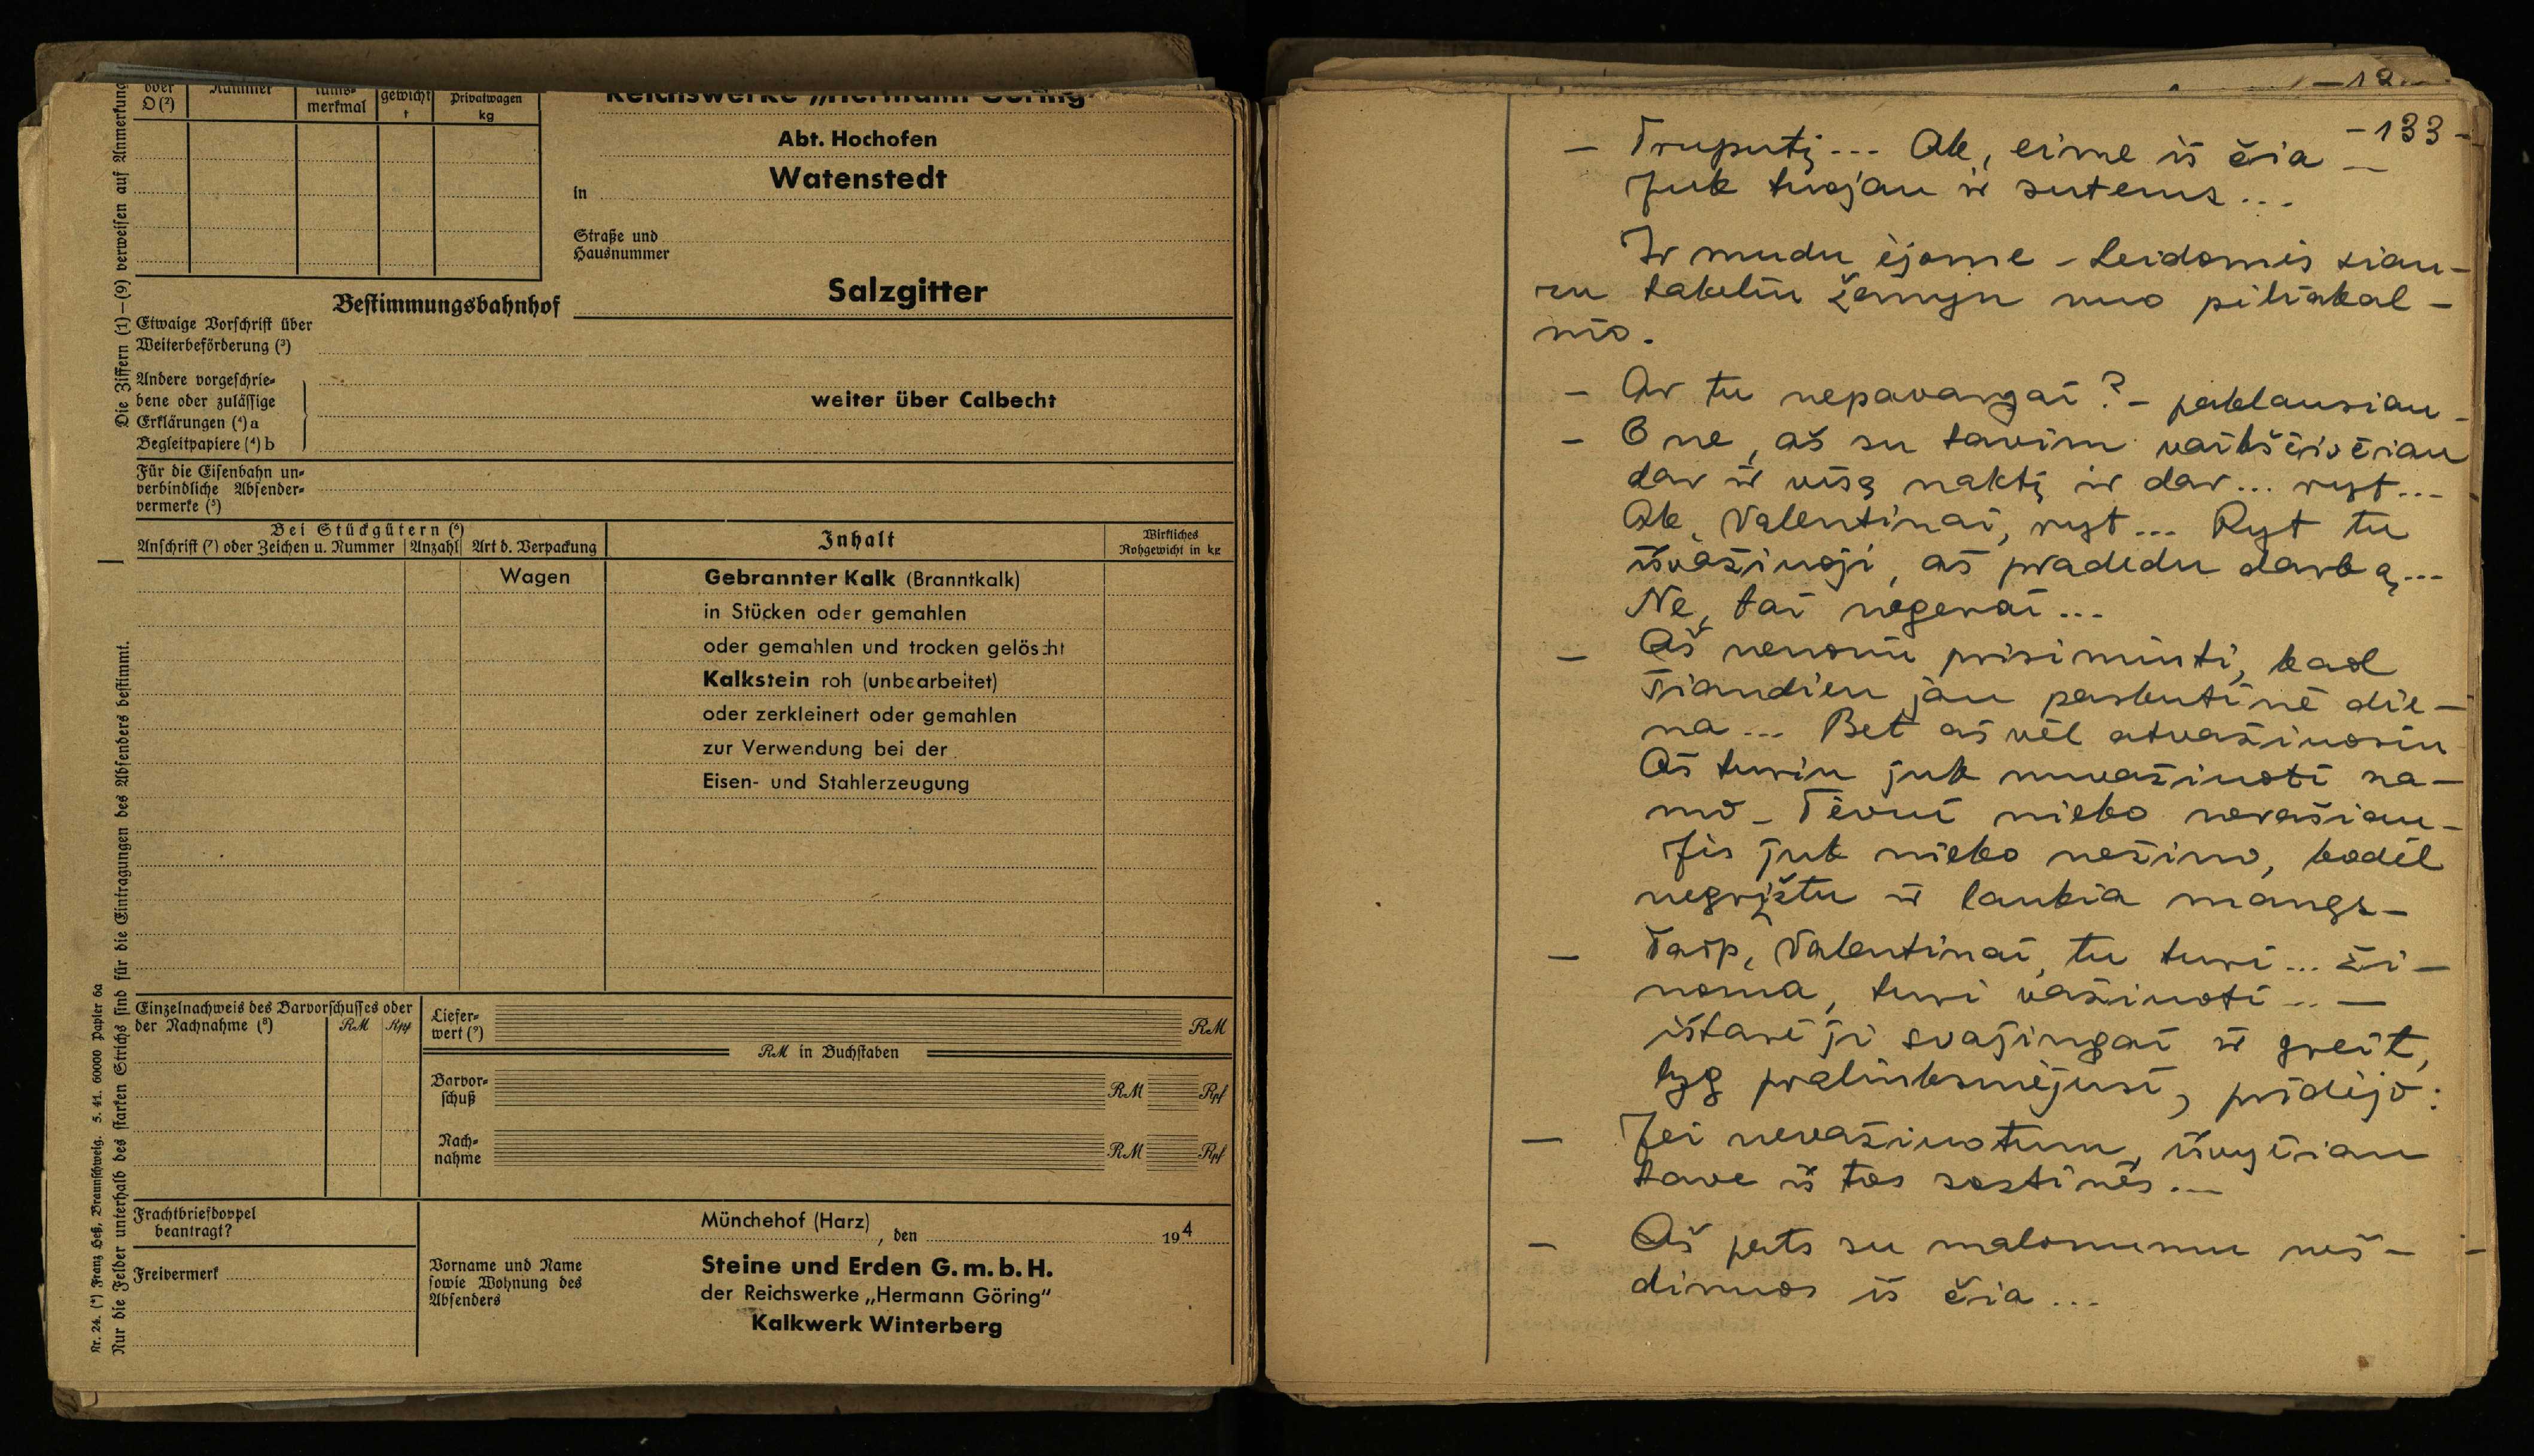 oder
O (²)
Nummer
merkmal
gewicht
t
Privatwagen
kg
Reichswerke „Hermann Göring
Abt. Hochofen
in Watenstedt
Straße und
Hausnummer
Bestimmungsbahnhof Salzgitter
Etwaige Vorschrift über
Weiterbeförderung (³)
Andere vorgeschrie-
bene oder zulässige
Erklärungen (⁴) a
Begleitpapiere (⁴) b
weiter über Calbecht
Für die Eisenbahn un-
verbindliche Absender-
vermerke (⁵)
Bei Stückgütern (⁶)
Anschrift (⁷) oder Zeichen u. Nummer Anzahl Art d. Verpackung
Inhalt
Wirkliches
Rohgewicht in kg
Wagen Gebrannter Kalk (Branntkalk)
in Stücken oder gemahlen
oder gemahlen und trocken gelöscht
Kalkstein roh (unbearbeitet)
oder zerkleinert oder gemahlen
zur Verwendung bei der
Eisen- und Stahlerzeugung
Einzelnachweis des Barvorschusses oder
der Nachnahme (⁸) RM Rpf
Liefer-
wert (⁹) RM
RM in Buchstaben
Barvor-
schuß RM Rpf
Nach-
nahme RM Rpf
Frachtbriefdoppel
beantragt?
Freivermerk
Münchehof (Harz), den 194
Vorname und Name
sowie Wohnung des
Absenders
Steine und Erden G.m.b.H.
der Reichswerke „Hermann Göring"
Kalkwerk Winterberg
Die Ziffern (1)—(9) verweisen auf Anmerkung
Nur die Felder unterhalb des starken Strichs sind für die Eintragungen des Absenders bestimmt.
Nr. 24. (*) Franz Heß, Braunschweig. 5. 41. 60000 Papier 6a
-133-
- Truputį... Ak, eime iš čia -
Juk tuojau ir sutems...
Ir mudu ėjome - Leidomės siau-
ru takeliu žemyn nuo piliakal-
nio.
- Ar tu nepavargai? - paklausiau -
- O ne, aš su tavim vaikščiočiau
dar ir visą naktį ir dar... ryt...
Ak, Valentinai, ryt... Ryt tu
išvažiuoji, aš pradedu darbą...
Ne, tai negerai...
- Aš nenoriu prisiminti, kad
šiandien jau paskutinė die-
na... Bet aš vėl atvažiuosiu
Aš turiu juk nuvažiuoti na-
mo - Tėvui nieko nerašiau -
Jis juk nieko nežino, kodėl
negrįžtu ir laukia manęs -
- Taip, Valentinai, tu turi... ži-
noma, turi važiuoti... -
ištarė ji svajingai ir greit,
lyg pralinksmėjusi, pridėjo:
- Jei nevažiuotum, išvyčiau
tave iš tos sostinės...
- Aš pats su malonumu neš-
dinuos iš čia...